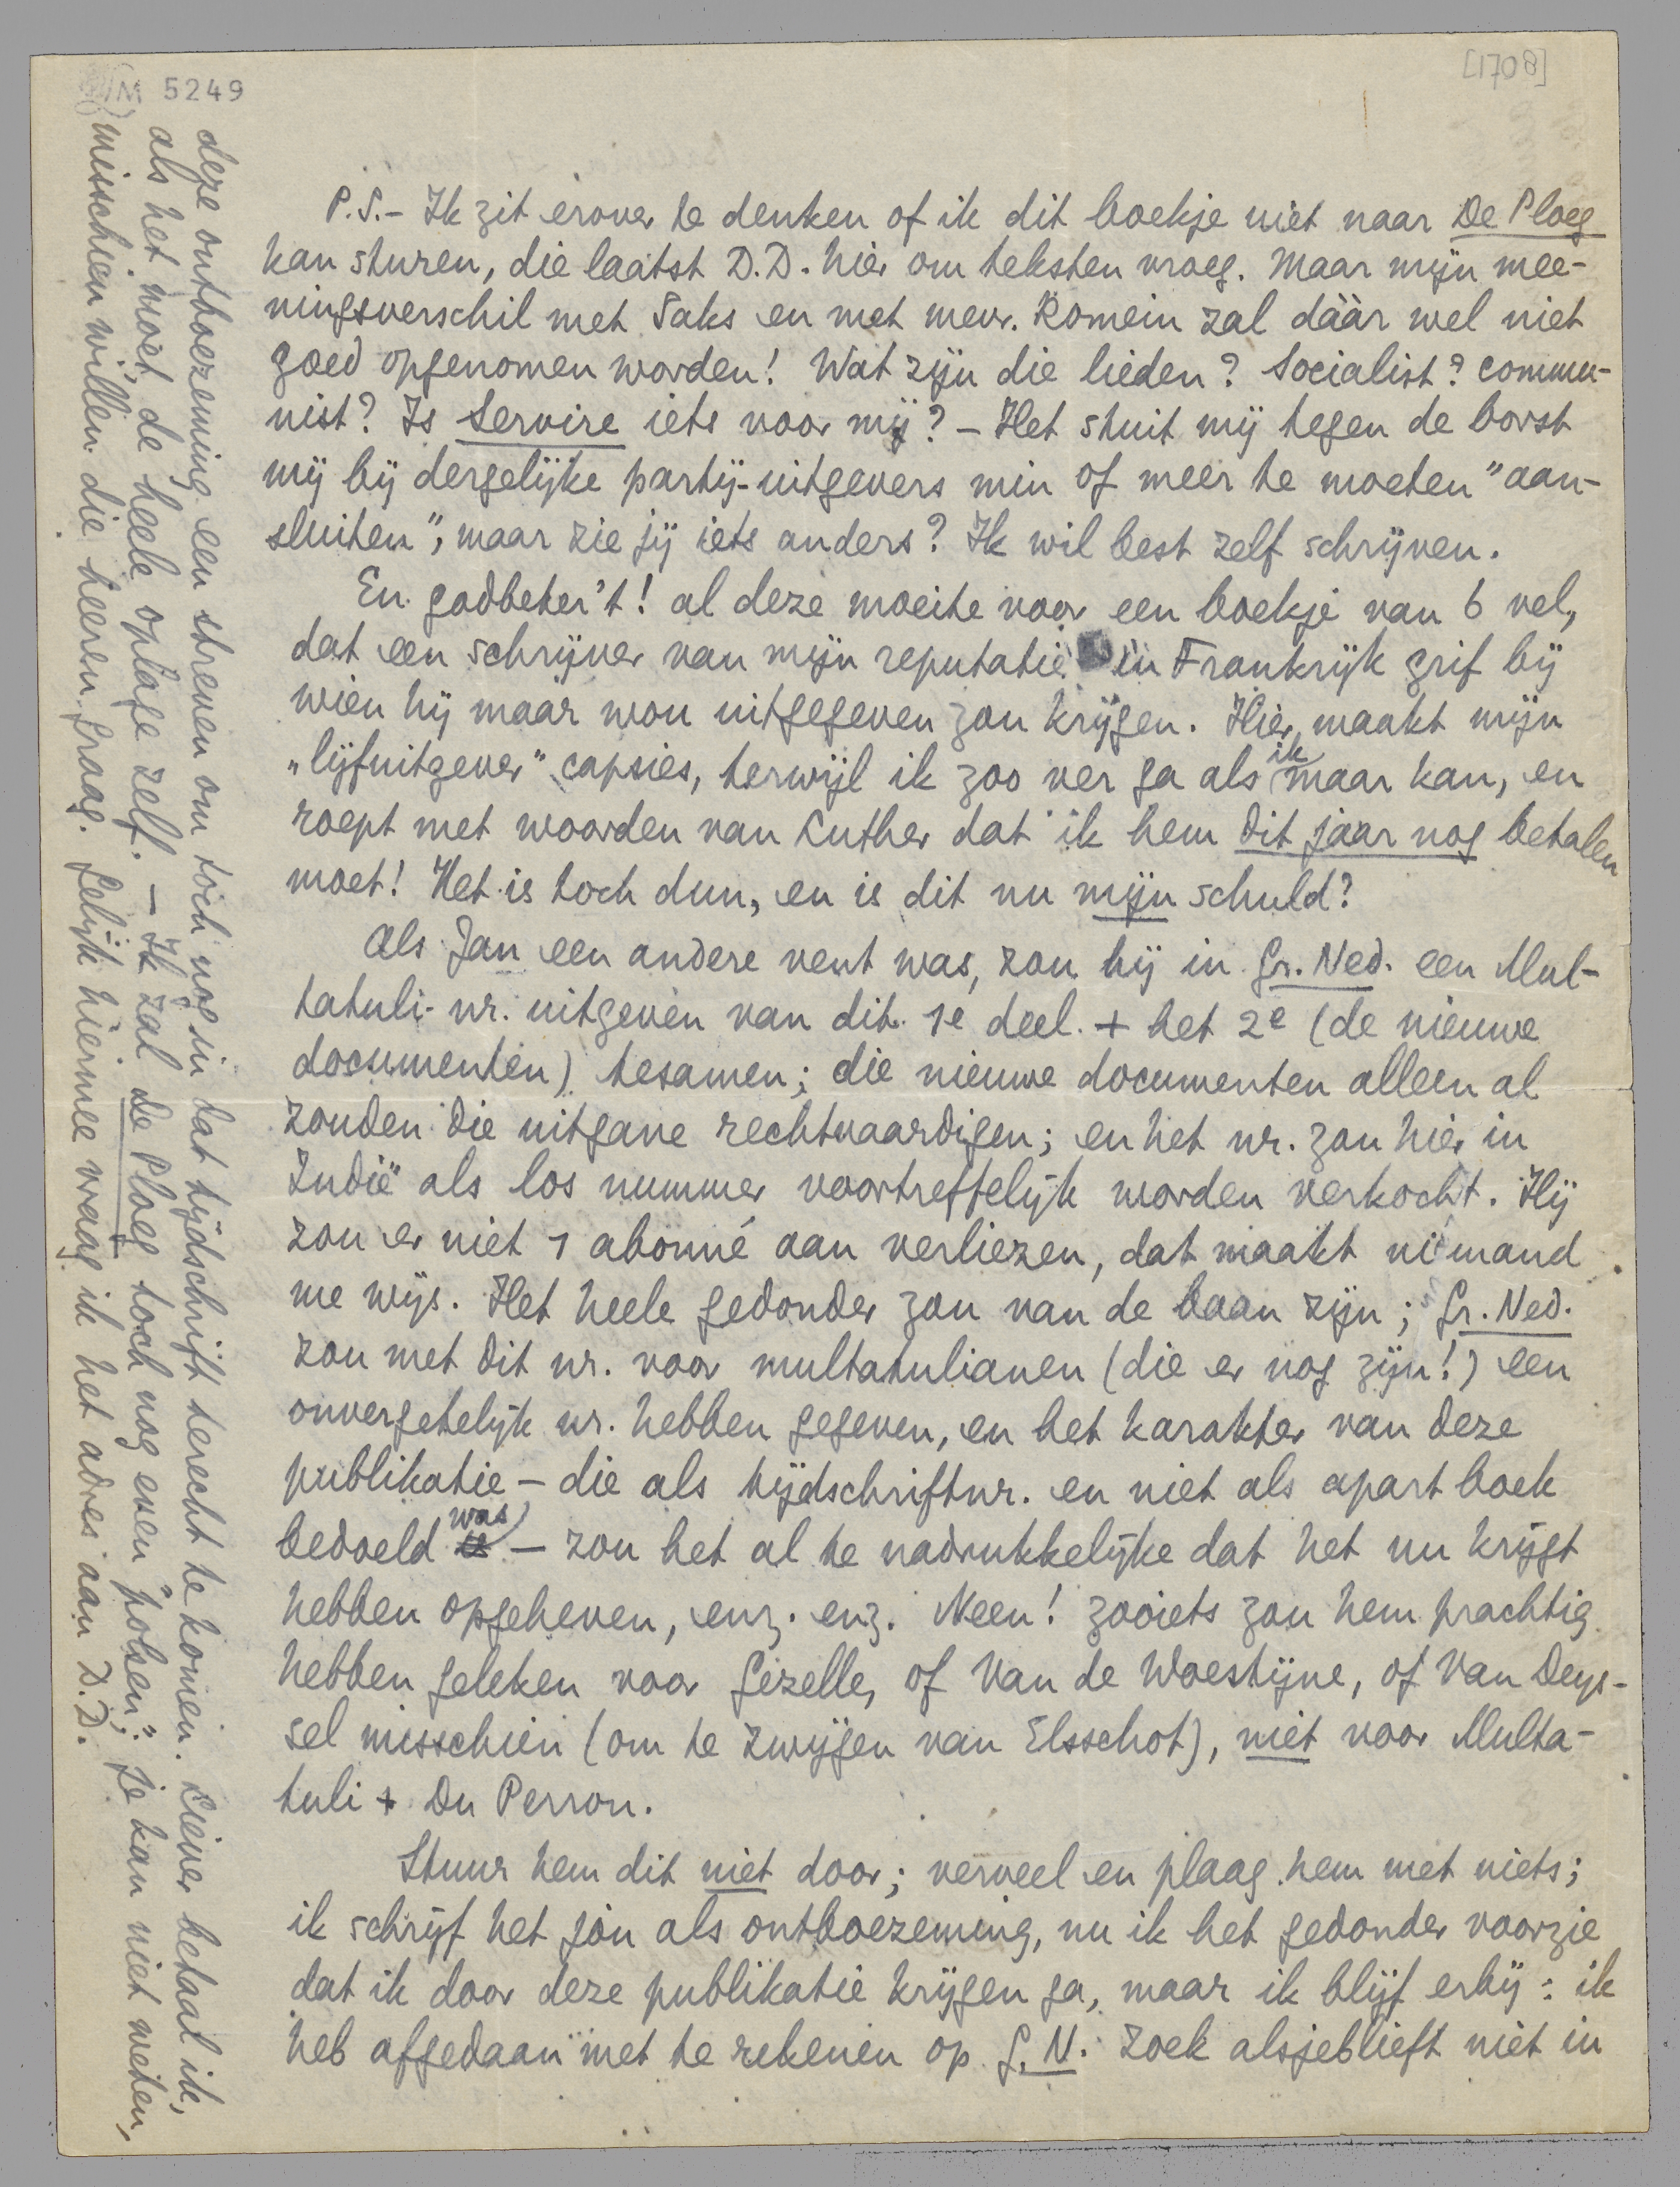 M 5249
[1708]
P.S. – Ik zit erover te denken of ik dit boekje niet naar De Ploeg
kan sturen, die laatst D.D. hier om teksten vroeg. Maar mijn mee-
ningsverschil met Saks en met mevr. Romein zal dààr wel niet
goed opgenomen worden! Wat zijn die lieden? Socialist? commu-
nist? Is Servire iets voor mij? – Het stuit mij tegen de borst
mij bij dergelijke partij-uitgevers min of meer te moeten "aan-
sluiten", maar zie jij iets anders? Ik wil best zelf schrijven.
En godbeter't! al deze moeite voor een boekje van 6 vel,
dat een schrijver van mijn reputatie in Frankrijk grif bij
wien hij maar wou uitgegeven zou krijgen. Hier maakt mijn
„lijfuitgever" capsies, terwijl ik zoo ver ga als ik maar kan, en
roept met woorden van Luther dat ik hem dit jaar nog betalen
moet! Het is toch dun, en is dit nu mijn schuld?
Als Jan een andere vent was, zou hij in Gr. Ned. een Mul-
tatuli-nr. uitgeven van dit 1e deel + het 2e (de nieuwe
documenten) tesamen; die nieuwe documenten alleen al
zouden die uitgave rechtvaardigen; en het nr. zou hier in
Indië als los nummer voortreffelijk worden verkocht. Hij
zou er niet 1 abonné aan verliezen, dat maakt niemand
me wijs. Het heele gedonder zou van de baan zijn; Gr. Ned.
zou met dit nr. voor multatulianen (die er nog zijn!) een
onvergetelijk nr. hebben gegeven, en het karakter van deze
publikatie – die als tijdschriftnr. en niet als apart boek
bedoeld was – zou het al te nadrukkelijke dat het nu krijgt
hebben opgeheven, enz. enz. Neen! zooiets zou hem prachtig
hebben geleken voor Gezelle, of Van de Woestijne, of Van Deys-
sel misschien (om te zwijgen van Elsschot), niet voor Multa-
tuli + Du Perron.
Stuur hem dit niet door; verveel en plaag hem met niets;
ik schrijf het jou als ontboezeming, nu ik het gedonder voorzie
dat ik door deze publikatie krijgen ga, maar ik blijf erbij: ik
heb afgedaan met te rekenen op G.N. Zoek alsjeblieft niet in
deze ontboezeming een streven om toch nog in dat tijdschrift terecht te komen. Liever betaal ik,
als het moet, de heele oplage zelf. – Ik zal De Ploeg toch nog even "polsen"; je kan niet weten,
misschien willen die heeren graag. Gelijk hiermee vraag ik het adres aan D.D.